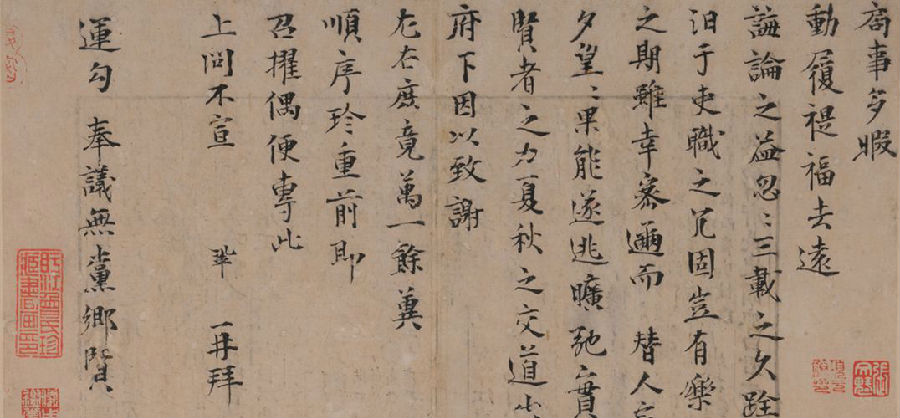 局事多暇
動履禔福去遠
誨論之益忽〻三載之久跧
汨于吏職之冗固豈有樂
之期雖幸密邇而 替人
夕望〻果能遂逃曠弛實
賢者之力夏秋之交道出
府下因以致謝
左右庶竟萬一餘冀
順序珍重前即
召擢偶便專此
上問不宣 鞏 再拜
運勾 奉議無黨鄉賢